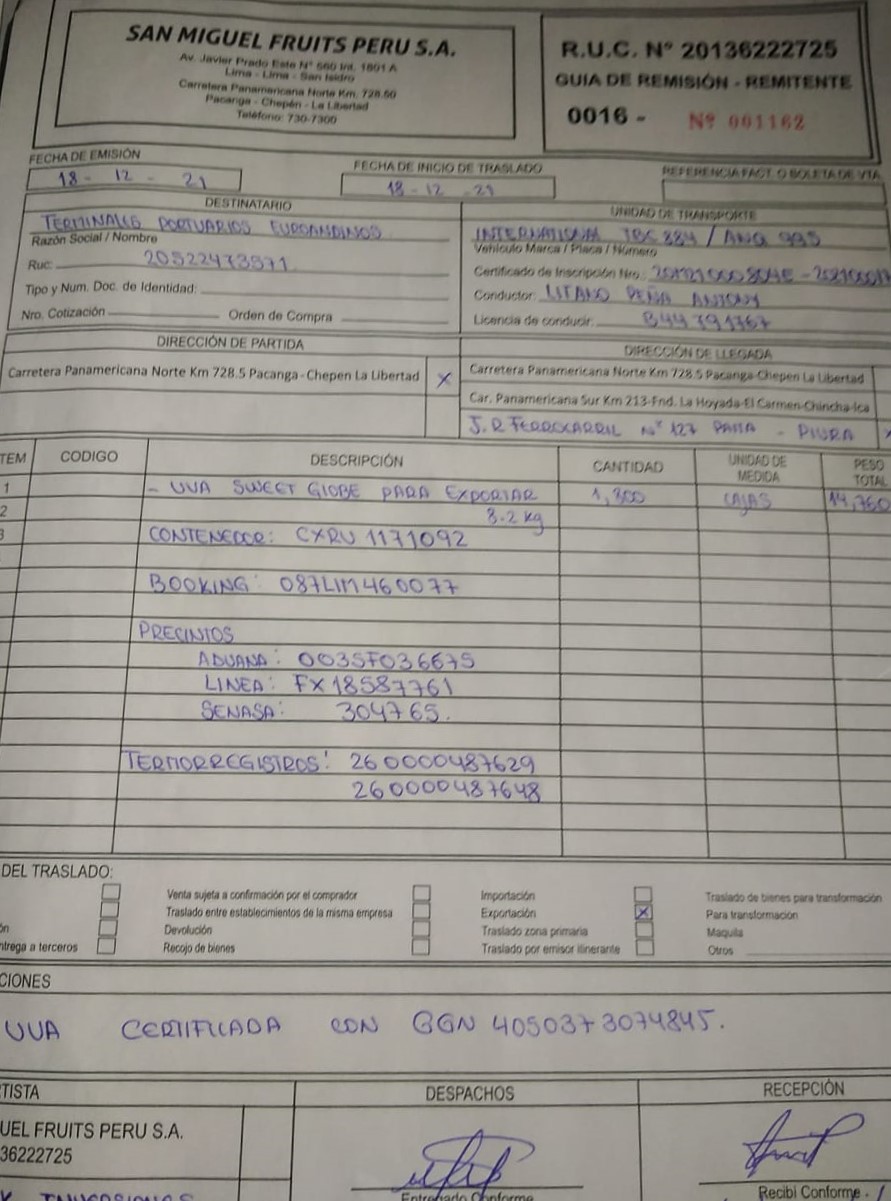 SAN MIGUEL FRUITS PERU S.A.
Av. Javier Prado Este Nº 560 Int. 1801 A
Lima - Lima - San Isidro
Carretera Panamericana Norte Km. 728.50
Pacanga - Chepén - La Libertad
Teléfono: 730-7300
R.U.C. Nº 20136222725
GUIA DE REMISIÓN - REMITENTE
0016 - Nº 001162
FECHA DE EMISIÓN
18 - 12 - 21
FECHA DE INICIO DE TRASLADO
18 - 12 - 21
REFERENCIA FACT. O BOLETA DE VTA
DESTINATARIO
TERMINALES PORTUARIOS EUROANDINOS
Razón Social / Nombre
Ruc: 20522473571
Tipo y Num. Doc. de Identidad:
Nro. Cotización Orden de Compra
UNIDAD DE TRANSPORTE
INTERNATIONAL TBC 884 / ANQ 995
Vehículo Marca / Placa / Número
Certificado de Inscripción Nro.
Conductor: LITANO PEÑA ANTONY
Licencia de conducir: B44791767
DIRECCIÓN DE PARTIDA
Carretera Panamericana Norte Km 728.5 Pacanga-Chepen La Libertad X
DIRECCIÓN DE LLEGADA
Carretera Panamericana Norte Km 728.5 Pacanga-Chepen La Libertad
Car. Panamericana Sur Km 213-Fnd. La Hoyada-El Carmen-Chincha-Ica
J.R FERROCARRIL Nº 127 PAITA - PIURA X
TEM CODIGO DESCRIPCIÓN CANTIDAD UNIDAD DE MEDIDA PESO TOTAL
1 - UVA SWEET GLOBE PARA EXPORTAR 1,800 CAJAS 14,760
2 8.2 kg
3 CONTENEDOR: CXRU 1171092
BOOKING: 087LIM460077
PRECINTOS
ADUANA: 0035F036675
LINEA: FX18587761
SENASA: 304765.
TERMORREGISTROS: 260000487629
260000487648
DEL TRASLADO:
Venta sujeta a confirmación por el comprador
Importación
Traslado de bienes para transformación
Traslado entre establecimientos de la misma empresa
Exportación X
Para transformación
ón
Devolución
Traslado zona primaria
Maquila
ntrega a terceros
Recojo de bienes
Traslado por emisor itinerante
Otros
CIONES
UVA CERTIFICADA CON GGN 4050373074845.
TISTA
UEL FRUITS PERU S.A.
36222725
DESPACHOS
Entregado Conforme
RECEPCIÓN
Recibí Conforme -